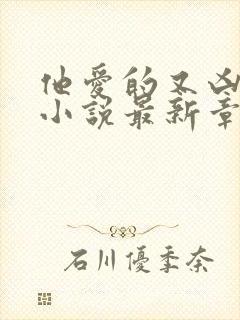 他爱的又凶
小说最新章
石川優季奈